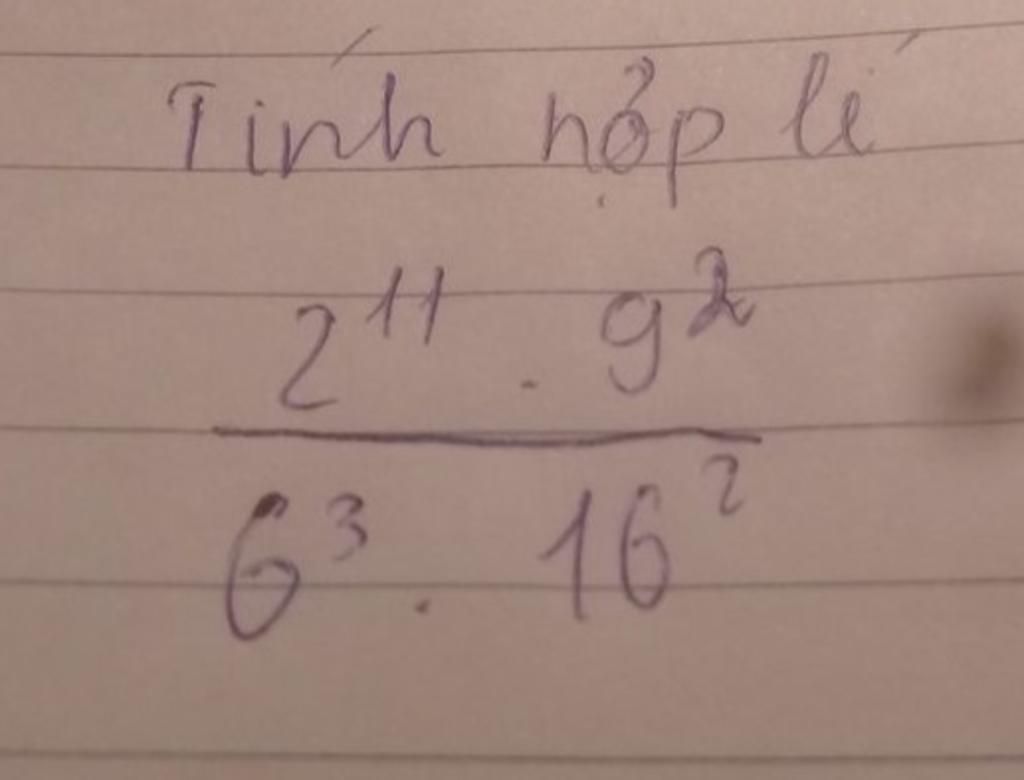 Tính hợp lí
2^11 . 9^2
6^3 . 16^2